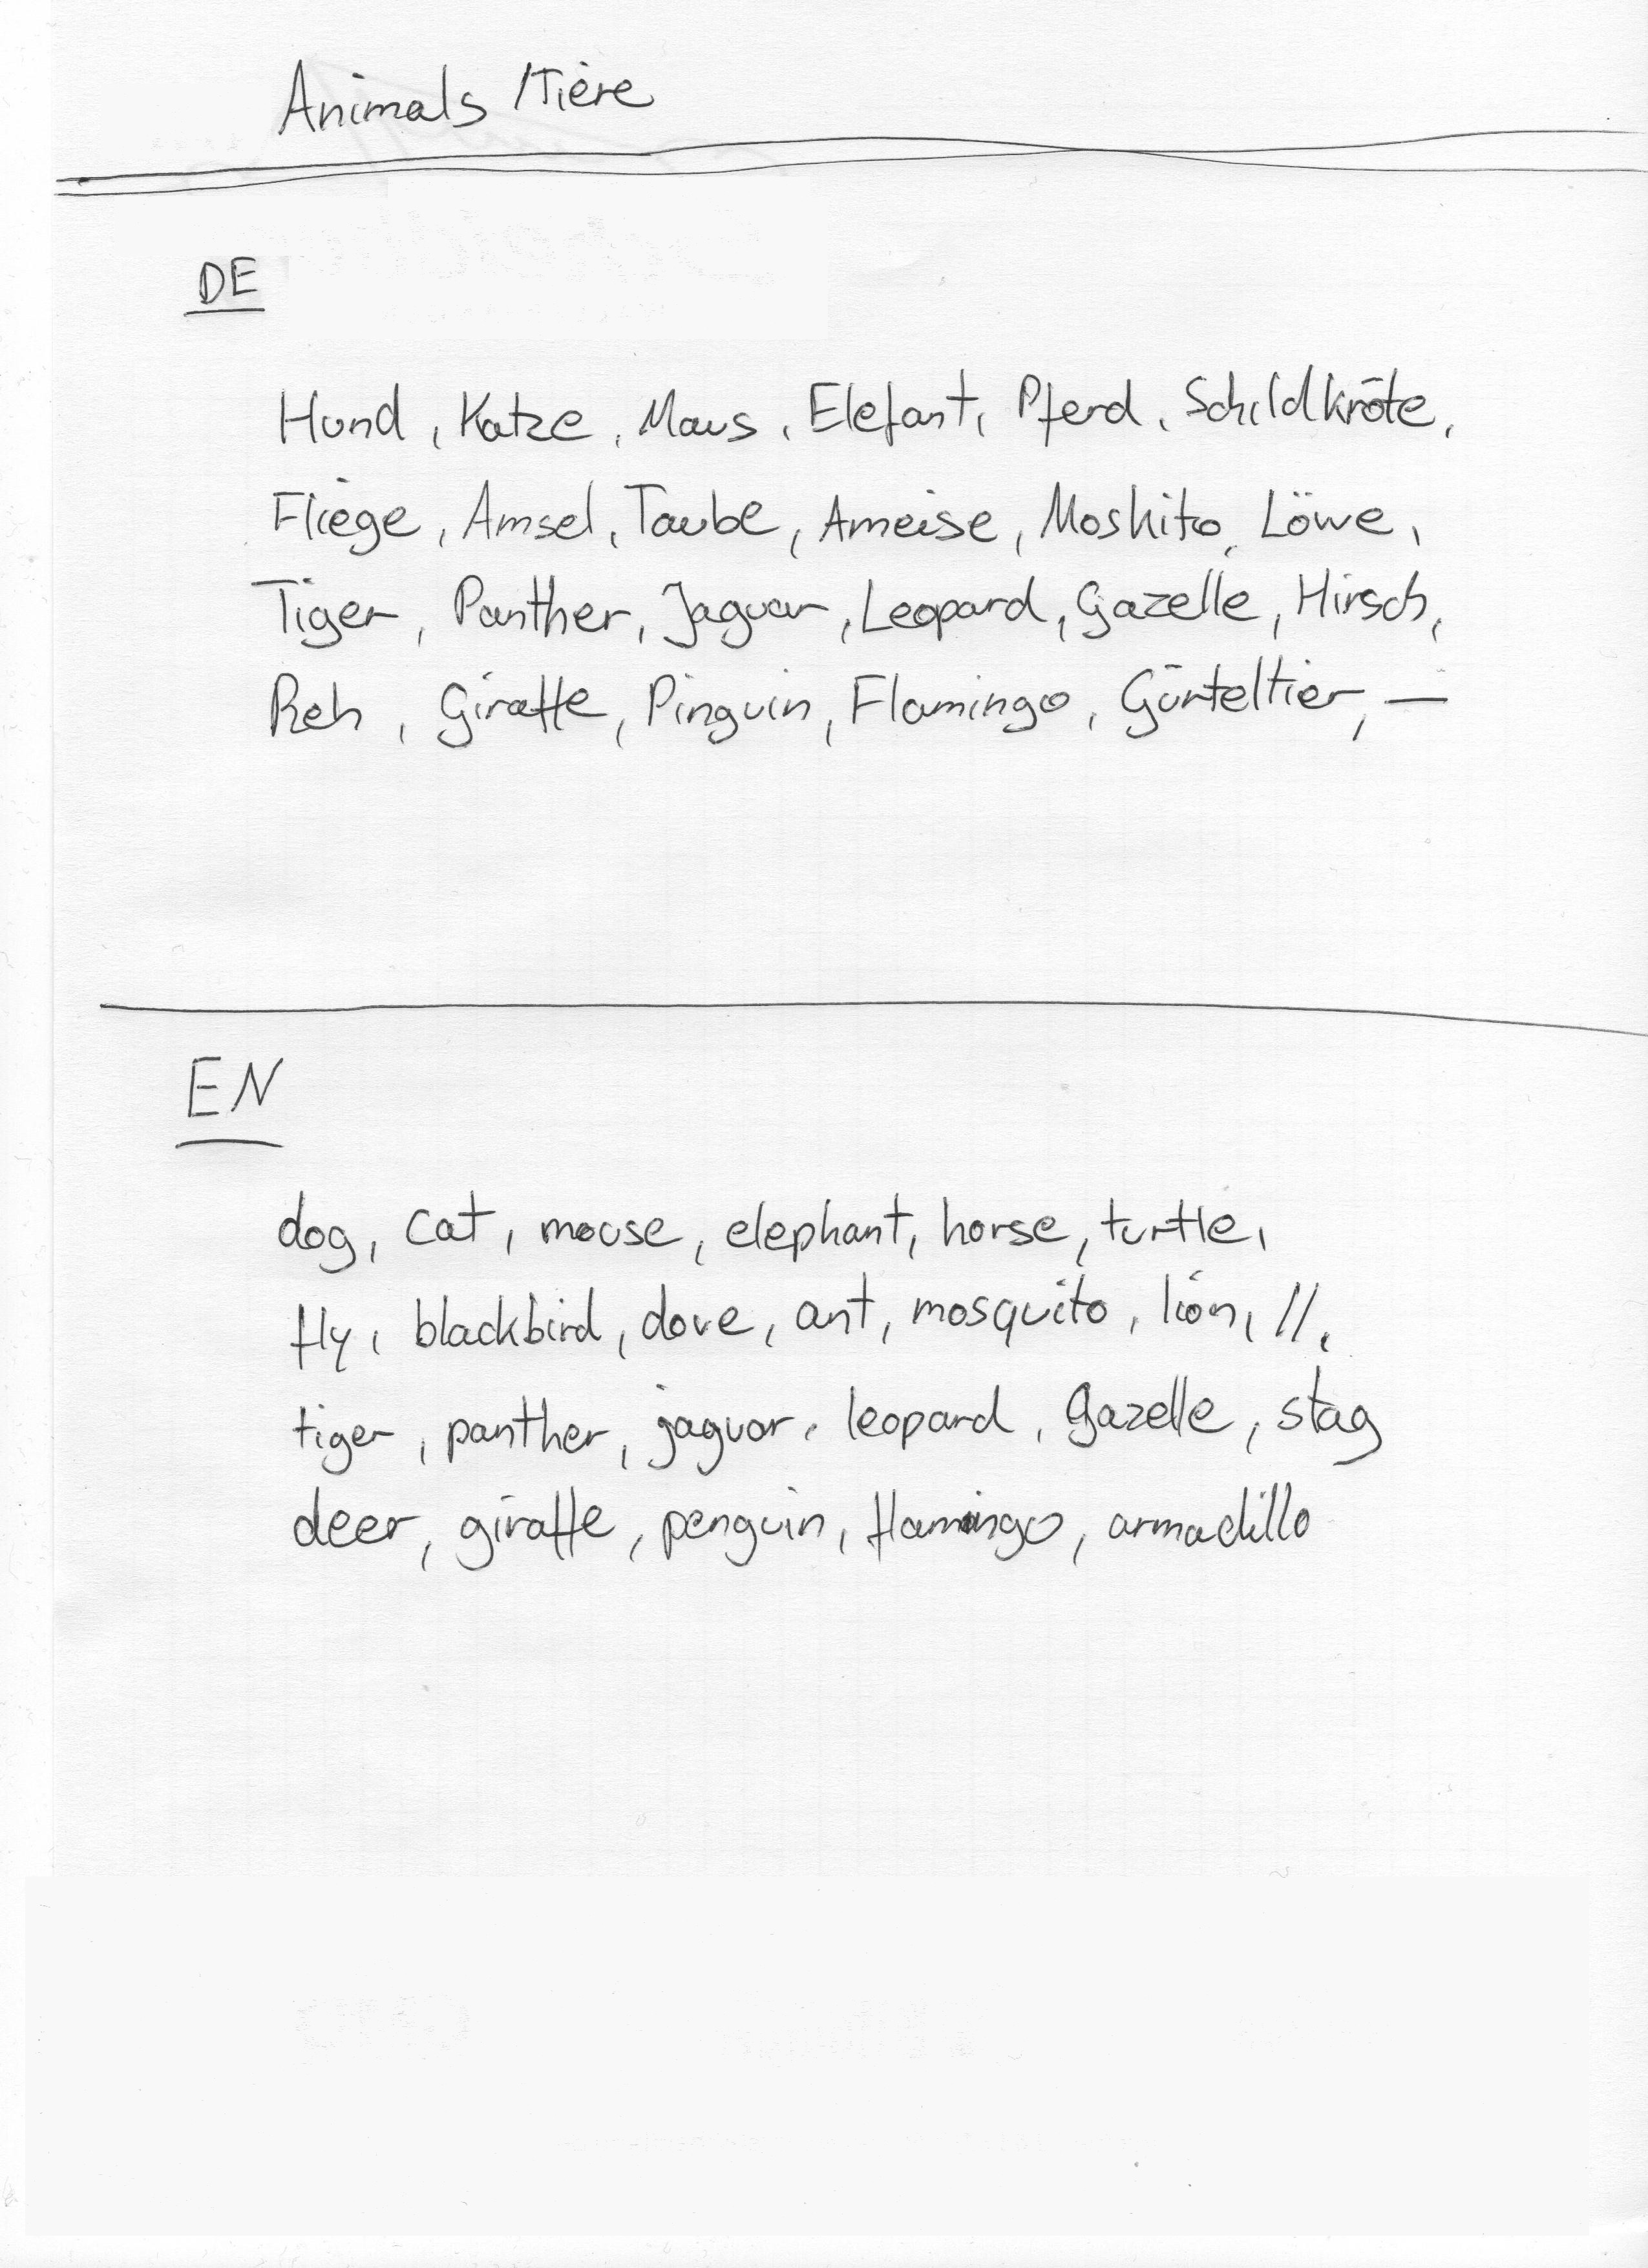 Animals / Tiere
DE
Hund, Katze, Maus, Elefant, Pferd, Schildkröte,
Fliege, Amsel, Taube, Ameise, Moskito, Löwe,
Tiger, Panther, Jaguar, Leopard, Gazelle, Hirsch,
Reh, Giraffe, Pinguin, Flamingo, Gürteltier, —
EN
dog, cat, mouse, elephant, horse, turtle,
fly, blackbird, dove, ant, mosquito, lion, //,
tiger, panther, jaguar, leopard, gazelle, stag
deer, giraffe, penguin, flamingo, armadillo